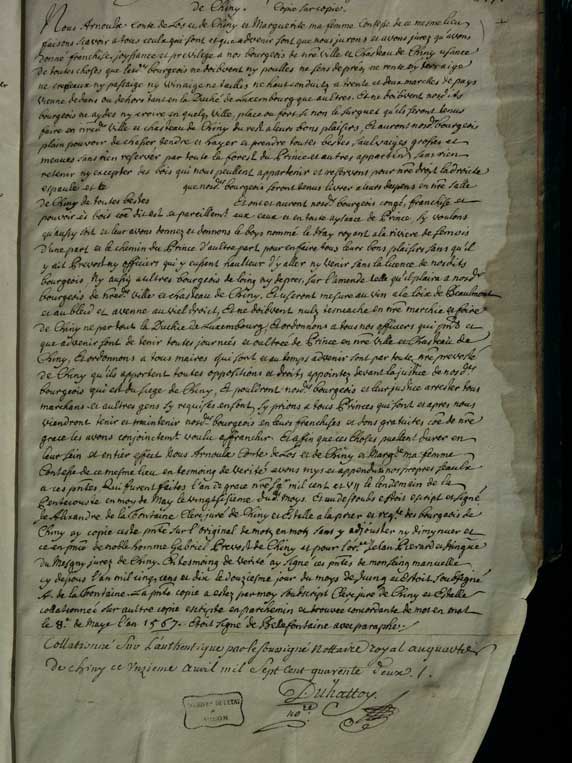 de Chiny. Copie sur copie.
Nous Arnoulx Conte de Los et de Chiny et Marguerite ma femme Contesse de ce mesme lieu
faisons scavoir a tous ceulx qui sont et que advenir sont que nous jurons et avons jurez qu'avons
bonne franchise, joyssance et previlege a nos bourgeois de nre ville et Chasteau de Chiny
de toutes choses que lesd. bourgeois ne doibvent ny ne rente ny
ny passaige ny vinaige ne tailles ne hault conduitz a trente et deux marches de pays
dedans ou dehors tant en la Duché de Luxembourg que aultres. Et ne doibvent nosd.
bourgeois ny en quelq. ville, place ou fort si non le qu'ils seront tenus
faire en nred. ville et chasteau de Chiny du rest a leurs bons plaisirs, Et auront nosd. bourgeois
plain pouvoir de chasser tendre et rayer et prendre toutes bestes sauvaiges grosses et
menues sans rien reserver par toute la forest du Prince et autres appartenan. sans rien
retenir ny excepter des bois qui nous peullent appartenir et reservons pour nre droit la droicte
espaule et que nosd. bourgeois seront tenus livrer a leurs despens en nre salle
de Chiny de toutes bestes Et ont et auront nosd. bourgeois congé, franchise et
pouvoir es bois co͞e dit est a pareillemt aux eaux et en toute aysance de Prince. Sy voulons
qu'aussy ont et leur avons donnez et donnons le boys nommé le royant a la riviere de Semois
d'une part et le chemin du Prince d'autre part pour en faire tous leurs bons plaisirs sans qu'il
y ait Prevost ny officiers qui y eussent haulteur d'y aller ny venir sans la licence de nosdits
bourgeois Ny aussy aultres bourgeois de loing ny de pres, sur l'amende telle qu'il plaira a nosd.
bourgeois de nred. ville et chasteau de Chiny. Et useront mesure au vin a la loix de Beaulmont
et au bled et avenne au viel droict, Et ne doibvent nulz en nre marchie et foire
de Chiny ne par tout la Duchie de Luxembourg, Et ordonnons a tous nos officiers qui et
que advenir sont de tenir toutes journées et oultrees de Prince en nre ville et Chasteau de
Chiny. Et ordonnons a tous maires qui sont et au temps advenir sont par toute nre prevosté
de Chiny qu'ils apportent toutes oppositions et droits appointez devant la justice de nosd.
bourgeois qui est du siege de Chiny, Et pouldront nosd. bourgeois et leur justice arrester tous
marchans et aultres gens sy requis en sont, Sy prions a tous Princes qui sont et apres nous
viendront tenir et maintenir nosd. bourgeois en leurs franchises et dons gratuites co͞e de nre
grace les avons conjoinctemt voulu affranchir. Et afin que ces choses puellent durer en
leur sein et entier effect Nous Arnoulx Conte de Los et de Chiny et Margte ma femme
Contesse de ce mesme lieu en tesmoing de verité avons mys et appendu nos propres seaulx
a ces pntes Qui furent faites l'an de grace nre Sgr mil cent et VII le lendemain de la
Pentecouste en moy de May le vingtsisieme dud. moys. Et au dessoubs estois escript et signé
de Alixandre de la Fontaine Clerc juré de Chiny et Estalle a la prier et reqte des bourgeois de
Chiny ay copié ceste pnte sur l'original de mot en mot sans y adjouster ny diminuer et
ce en pnce de noble homme Gabriel Prevost de Chiny et pour lors Jehan Pierard et
du Mesgny jurez de Chiny. En tesmoing de verité ay signé ces pntes de mon sing manuelle
cy dessous l'an mil cinq cens et dix le douziesme jour du moys de Juing et estoit soubsigné
A. de la Fontaine. La pnte copie a estez par moy soubscript Clerc juré de Chiny et Estalle
collationnée sur aultre copie escripte en parchemin et trouvée concordante de mot en mot
le 8e de Maye l'an 1567. Estoit signé de Bellefontaine avec paraphe.
Collationné sur l'authentique par le soussigné Nottaire royal au quartier
de Chiny ce Unzieme avril mil sept cent quarente deux.
Duhattoy
nore
ARCHIVES DE L'ETAT
A
ARLON